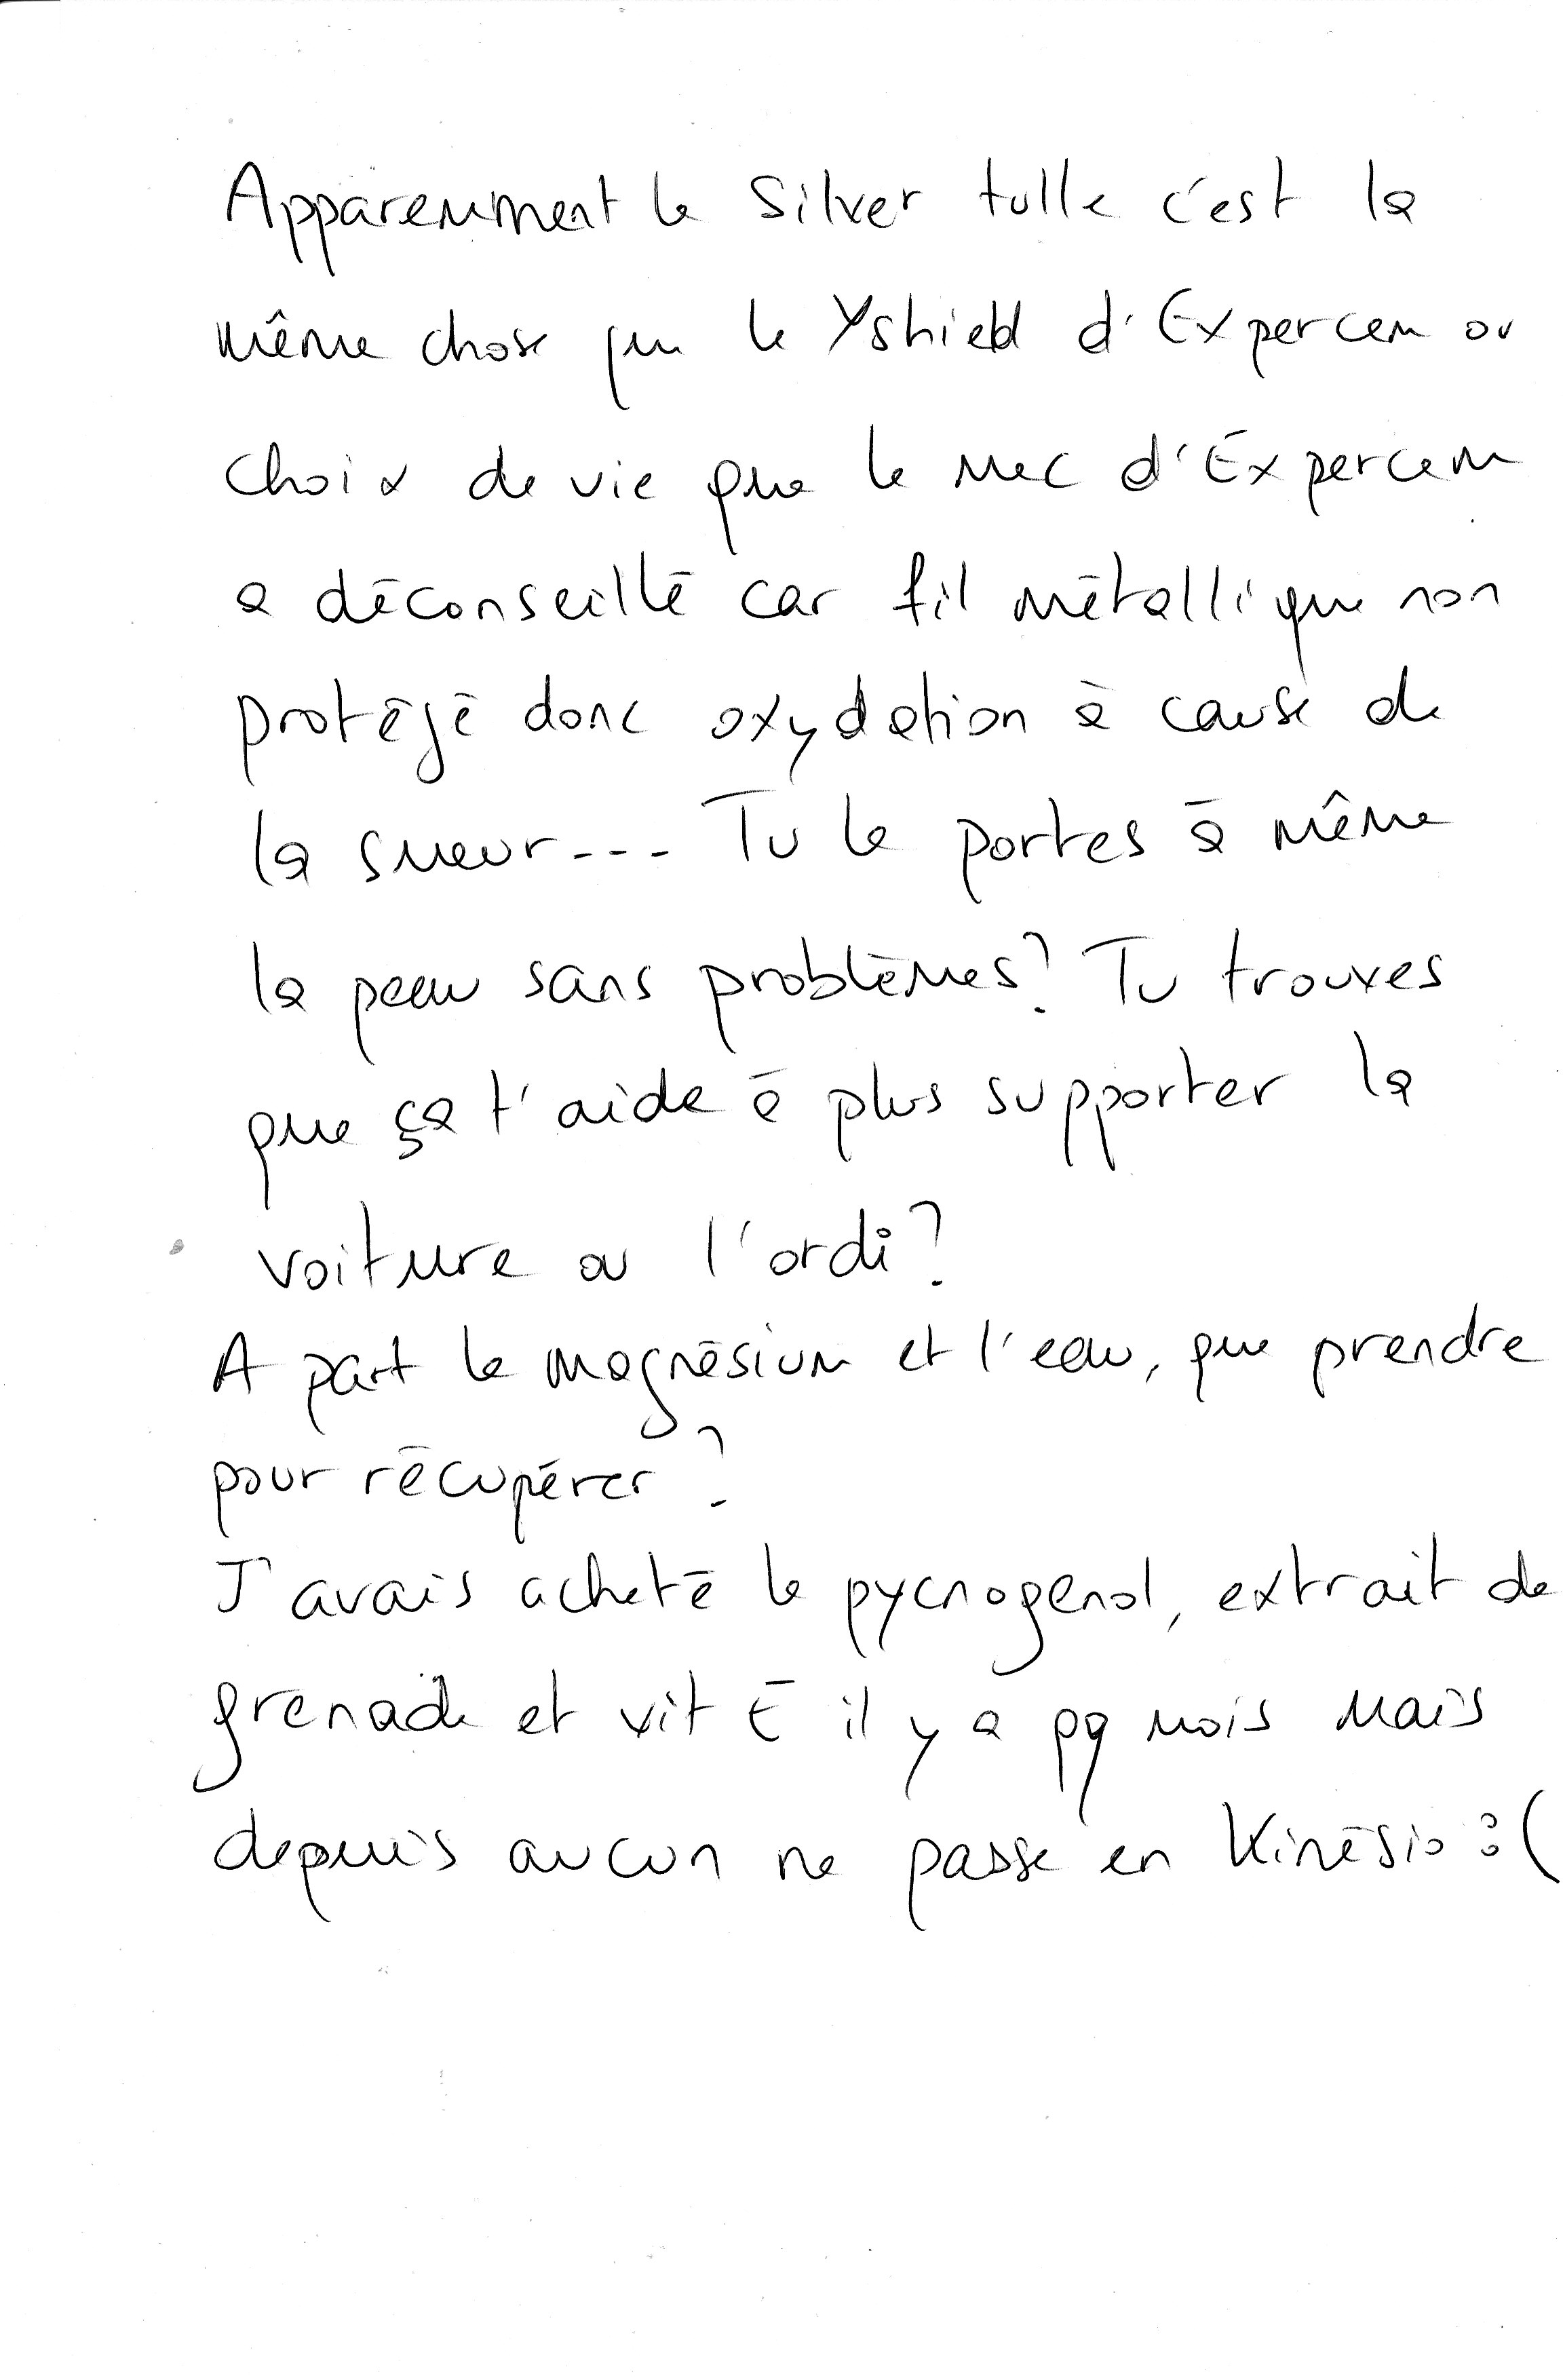 Apparemment le Silver tulle c'est la
même chose que le Yshield d'Expercem ou
choix de vie que le mec d'Expercem
a déconseillé car fil métallique non
protégé donc oxydation à cause de
la sueur--- Tu le portes à même
la peau sans problèmes? Tu trouves
que ça t'aide à plus supporter la
voiture ou l'ordi?
A part le magnésium et l'eau, que prendre
pour récupérer?
J'avais acheté le pycnogenol, extrait de
grenade et vit E il y a pq mois mais
depuis aucun ne passe en Kinésio :(